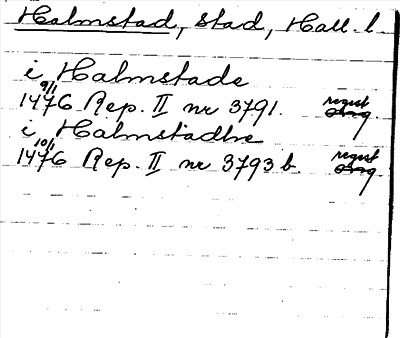 Halmstad, stad, Hall. l
i Halmstade
1476 9/1 Rep. II nr 3791. regest
i Halmstadhe
1476 10/1 Rep. II nr 3793 b. regest